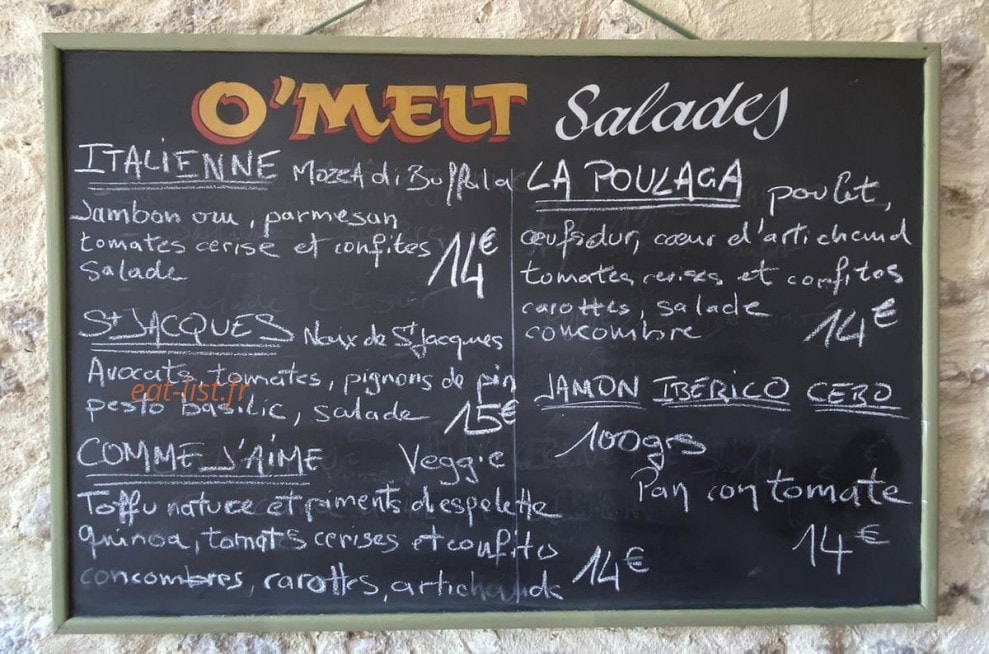 O'MELT Salades
ITALIENNE Mozza di Buffala
Jambon cru, parmesan
tomates cerise et confites
Salade 14€
St JACQUES Noix de St Jacques
Avocats, tomates, pignons de pin
pesto basilic, salade 15€
eat-list.fr
COMME J'AIME Veggie
Toffu nature et piments d'espelette
quinoa, tomates cerises et confites
concombres, carottes, artichauds 14€
LA POULAGA poulet,
œufs dur, cœur d'artichaud
tomates cerises et confites
carottes, salade
concombre 14€
JAMON IBERICO CEBO
100grs
Pan con tomate
14€